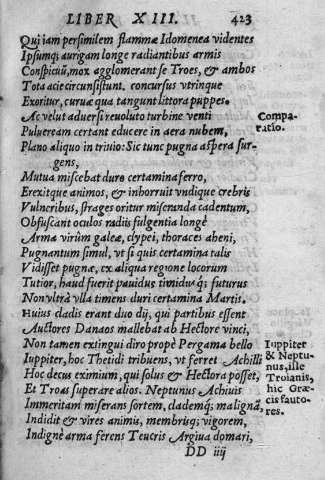 LIBER XIII. 423
Qui iam persimilem flammæ Idomenea videntes
Ipsumq; aurigam longe radiantibus armis
Conspicuũ, mox agglomerant se Troes, & ambos
Tota acie circunsistunt. concursus vtrinque
Exoritur, curuæ qua tangunt littora puppes.
Ac velut aduersi reuoluto turbine venti
Compa-
ratio.
Pulueream certant educere in aera nubem,
Plano aliquo in triuio: Sic tunc pugna aspera sur-
gens,
Mutua miscebat duro certamina ferro,
Erexitque animos, & inhorruit vndique crebris
Vulneribus, strages oritur miseranda cadentum,
Obfuscant oculos radiis fulgentia longè
Arma virûm galeæ, clypei, thoraces aheni,
Pugnantum simul, vt si quis certamina talis
Vidisset pugnæ, ex aliqua regione locorum
Tutior, haud fuerit pauidus timidusq; futurus
Non vltrà vlla timens duri certamina Martis.
Huius cladis erant duo dij, qui partibus essent
Auctores Danaos mallebat ab Hectore vinci,
Non tamen extingui diro propè Pergama bello
Iuppiter, hoc Thetidi tribuens, vt ferret Achilli
Iuppiter
& Neptu-
nus, ille
Troianis,
hic Græ-
cis fauto-
res.
Hoc decus eximium, qui solus & Hectora posset,
Et Troas superare alios. Neptunus Achiuis
Immeritam miserans sortem, clademq; malignã,
Indidit & vires animis, membrisq; vigorem,
Indignè arma ferens Teucris Argiua domari,
DD iiij